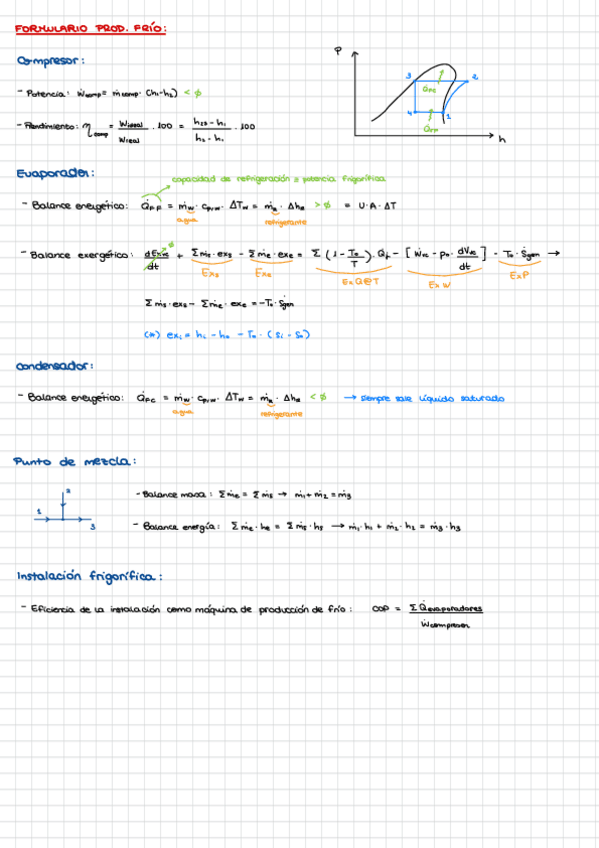 FORMULARIO PROD. FRÍO:
Compresor:
- Potencia: Ẇcomp = ṁcomp · (h₁-h₂) < ∅
- Rendimiento: η comp = Wideal / Wreal · 100 = h₂s - h₁ / h₂ - h₁ · 100
P
3 2
Q̇FC
4 1
Q̇FF
h
Evaporador:
capacidad de refrigeración = potencia frigorífica
- Balance energético: Q̇FF = ṁw · cp,w · ΔTw = ṁR · ΔhR > ∅ = U · A · ΔT
agua refrigerante
- Balance exergético: dExvc / dt ∅ + Σṁs · exs - Σṁe · exe = Σ (1 - T₀ / T) · Q̇j - [ Ẇvc - p₀ · dVvc / dt ] - T₀ · Ṡgen →
Exs Exe ExQ@T ExW ExP
Σṁs · exs - Σṁe · exe = -T₀ · Ṡgen
(*) exi = hi - h₀ - T₀ · (si - s₀)
Condensador:
- Balance energético: Q̇FC = ṁw · cp,w · ΔTw = ṁR · ΔhR < ∅ → siempre sale líquido saturado
agua refrigerante
Punto de mezcla:
2
1
3
- Balance masa: Σṁe = Σṁs → ṁ₁ + ṁ₂ = ṁ₃
- Balance energía: Σṁe · he = Σṁs · hs → ṁ₁ · h₁ + ṁ₂ · h₂ = ṁ₃ · h₃
Instalación frigorífica:
- Eficiencia de la instalación como máquina de producción de frío: COP = ΣQ̇evaporadores / Ẇcompresor